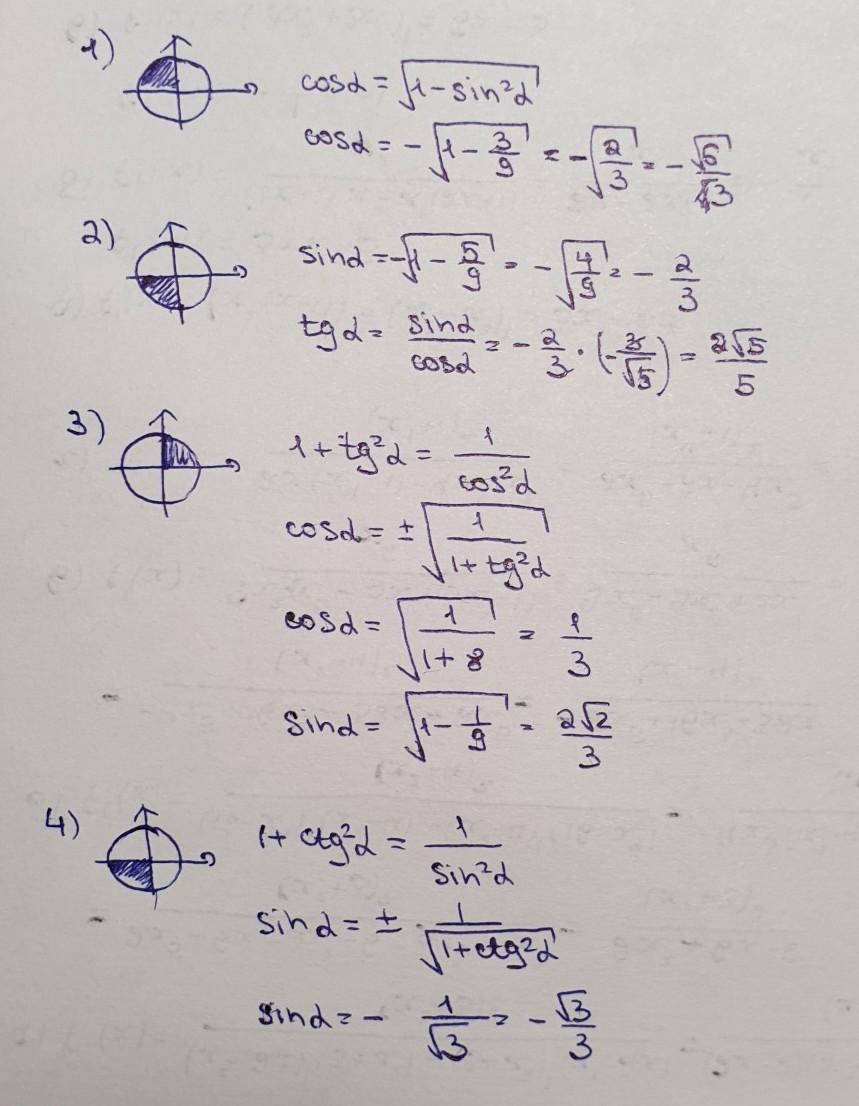 1) cosα = √(1-sin²α)
cosα = -√(1 - 3/9) = -√(2/3) = -√6/3
2) sinα = -√(1 - 5/9) = -√(4/9) = - 2/3
tgα = sinα/cosα = - 2/3 · (-3/√5) = 2√5/5
3) 1 + tg²α = 1/cos²α
cosα = ± √(1/(1 + tg²α))
cosα = √(1/(1 + 8)) = 1/3
sinα = √(1 - 1/9) = 2√2/3
4) 1 + ctg²α = 1/sin²α
sinα = ± 1/√(1+ctg²α)
sinα = - 1/√3 = - √3/3